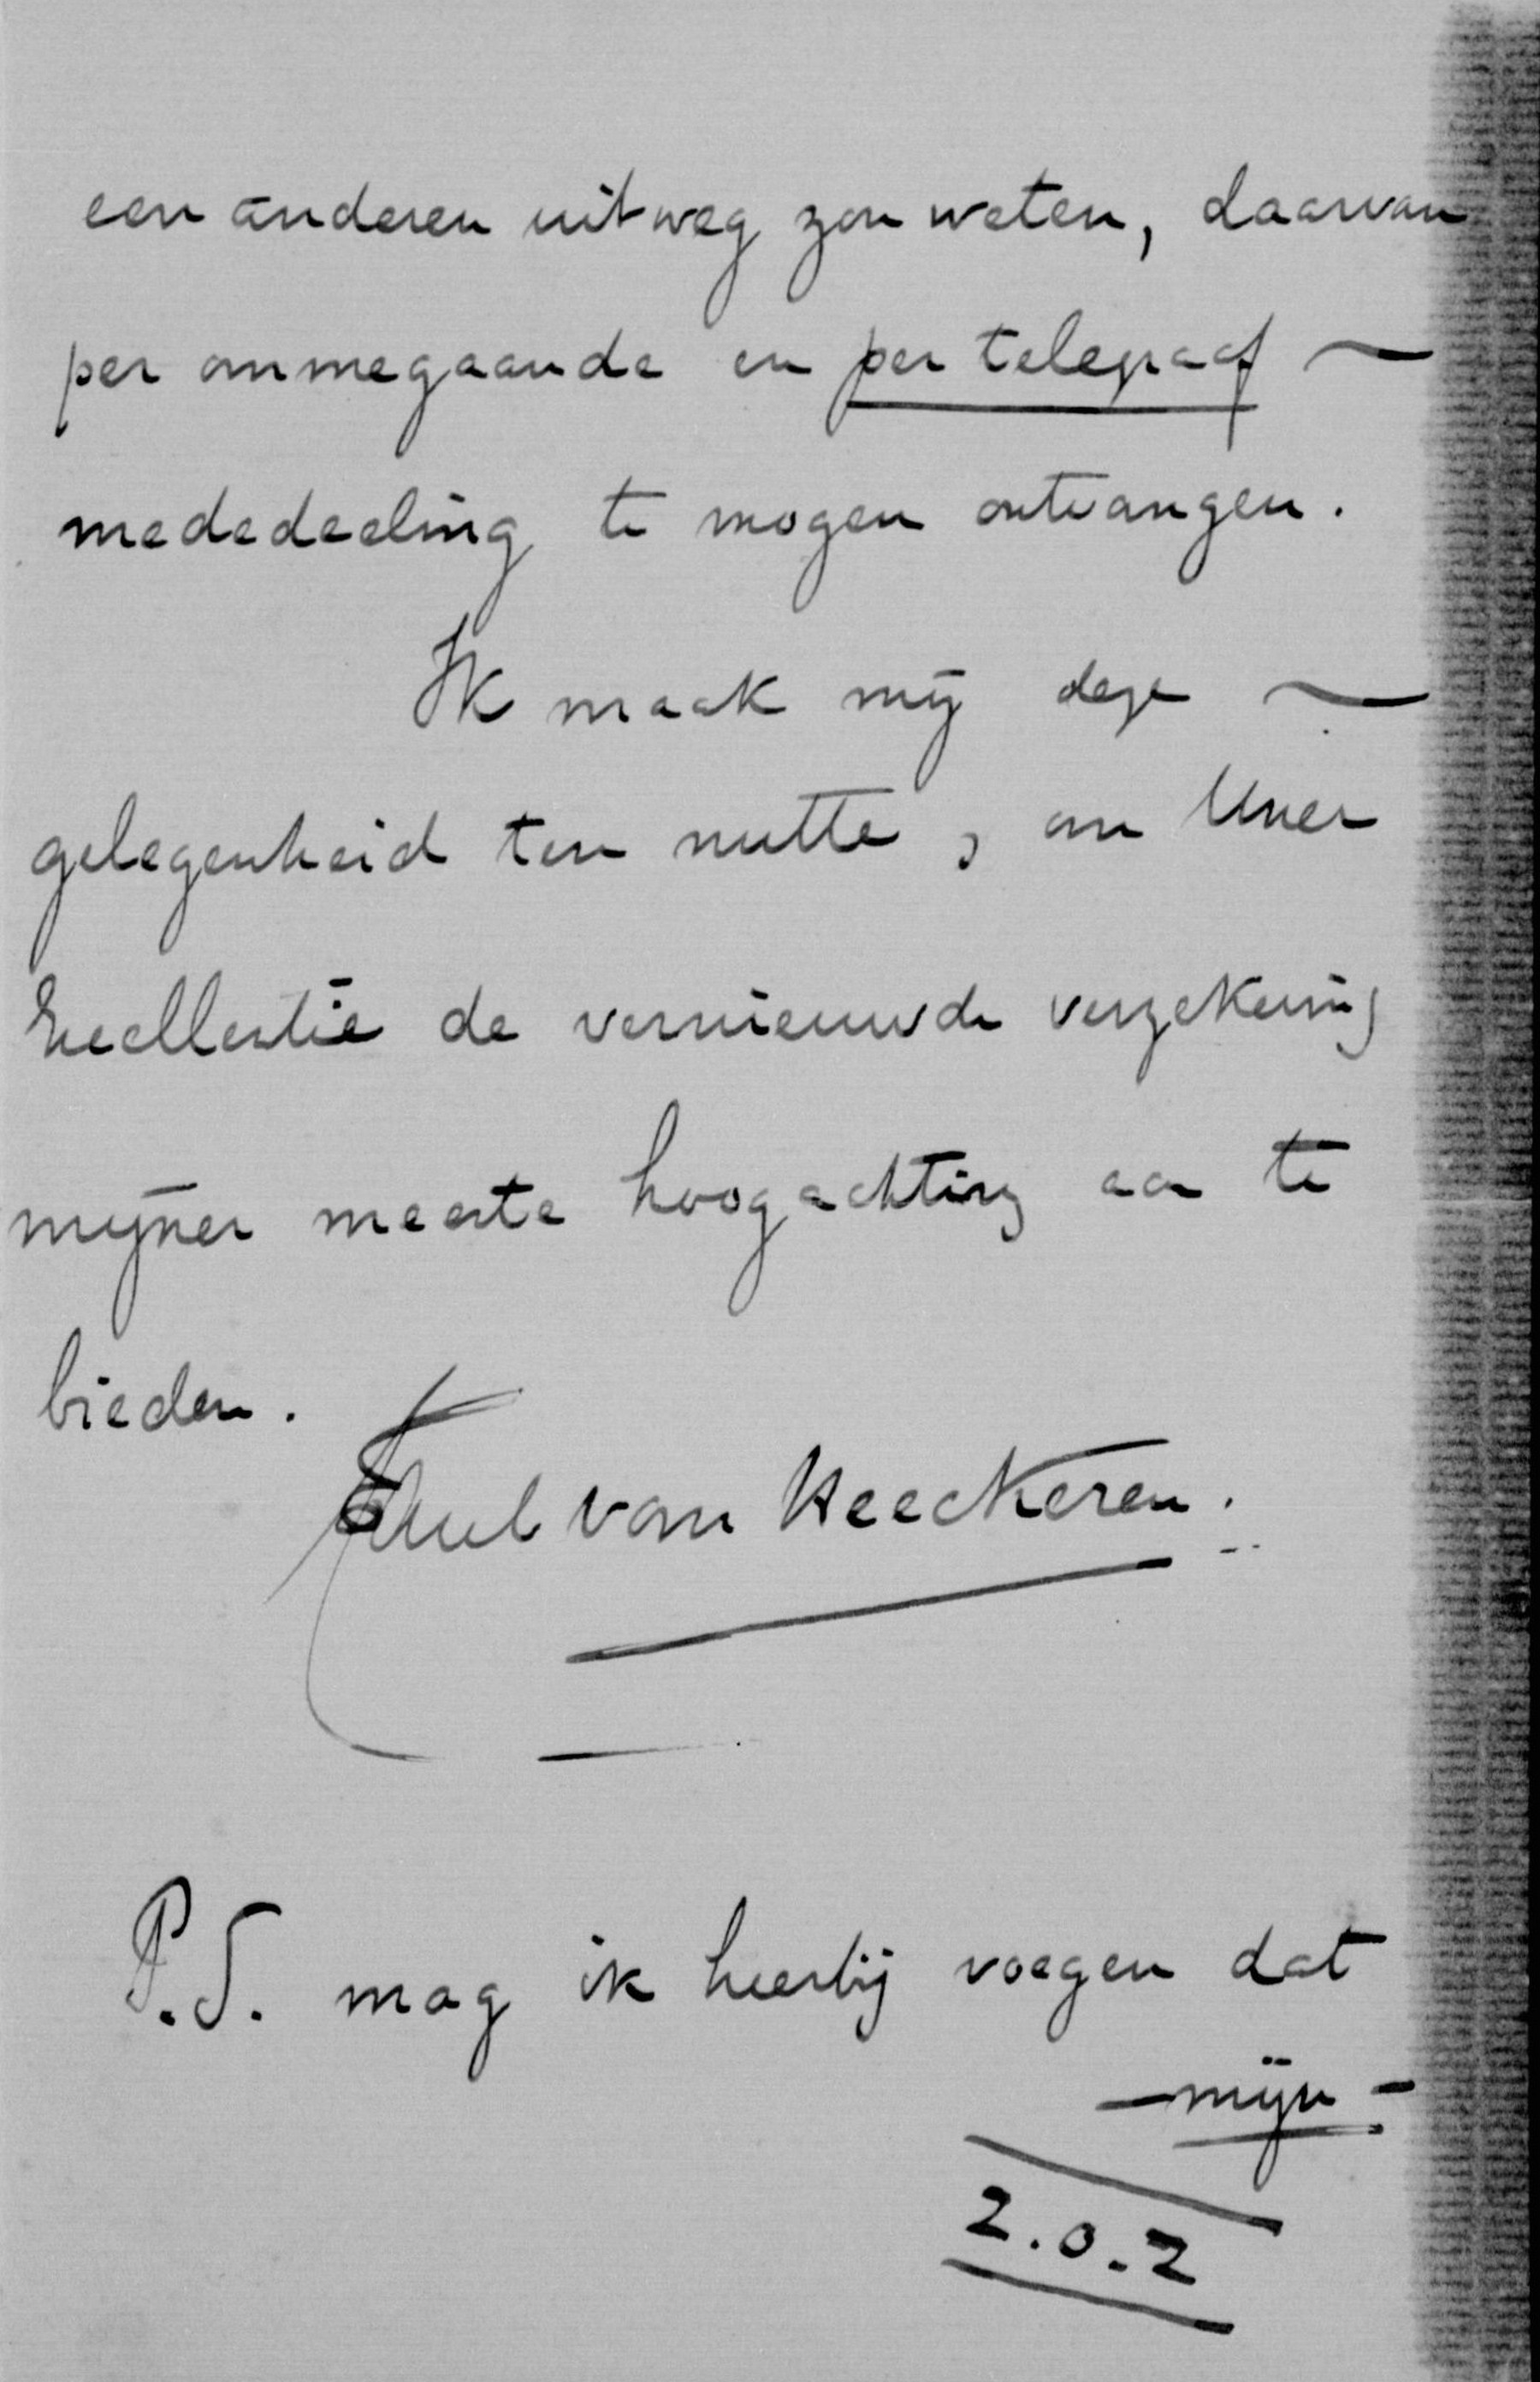 een anderen uitweg zou weten, daarvan
per ommegaande en per telegraaf ~
mededeeling te mogen ontvangen.
Ik maak mij deze ~
gelegenheid ten nutte, om Uwer
Excellentie de vernieuwde verzekering
mijner meeste hoogachting aan te
bieden.
van Heeckeren.
P.S. mag ik hierbij voegen dat
- mijn -
Z.O.Z